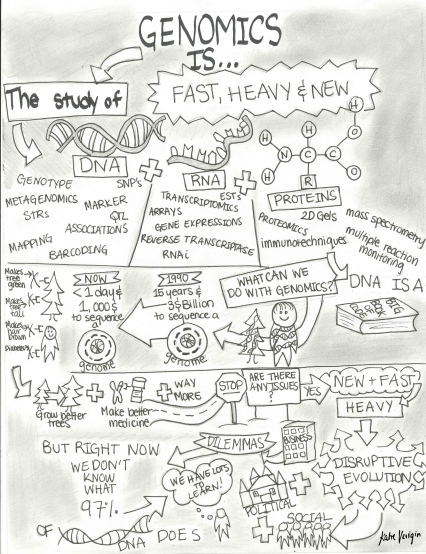 GENOMICS
IS...
The study of
FAST, HEAVY & NEW
DNA
RNA
PROTEINS
H
H
O
H
N
C
C
H
R
O
GENOTYPE
SNP's
METAGENOMICS
MARKER
STRs
QTL
ASSOCIATIONS
MAPPING
BARCODING
TRANSCRIPTOMICS
ESTs
ARRAYS
GENE EXPRESSIONS
REVERSE TRANSCRIPTASE
RNAi
PROTEOMICS
2D Gels
immunotechniques
mass spectrometry
multiple reaction
monitoring
Makes
tree
green
Makes
tree
tall
Makes
hair
brown
Diabetes
NOW
< 1 day &
1,000$
to sequence
a
genome
1990
15 years &
3$ Billion
to sequence a
genome
WHAT CAN WE
DO WITH GENOMICS?
DNA IS A
BIG
Grow better
trees
Make better
medicine
WAY
MORE
STOP
ARE THERE
ANY ISSUES
?
YES
NEW + FAST
HEAVY
DISRUPTIVE
EVOLUTION
DILEMMAS
BUSINESS
POLITICAL
SOCIAL
BUT RIGHT NOW
WE DON'T
KNOW
WHAT
97%
OF
DNA DOES
WE HAVE LOTS
TO
LEARN!
Katre Verigin